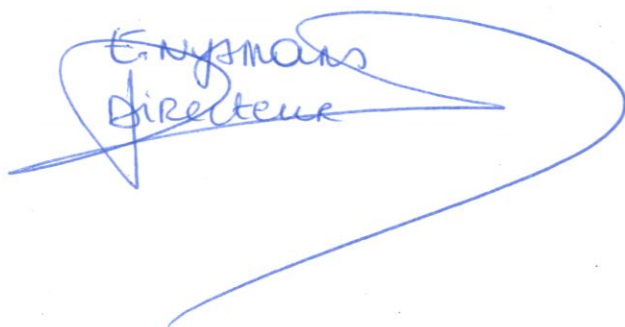 E. Nysmans
Directeur